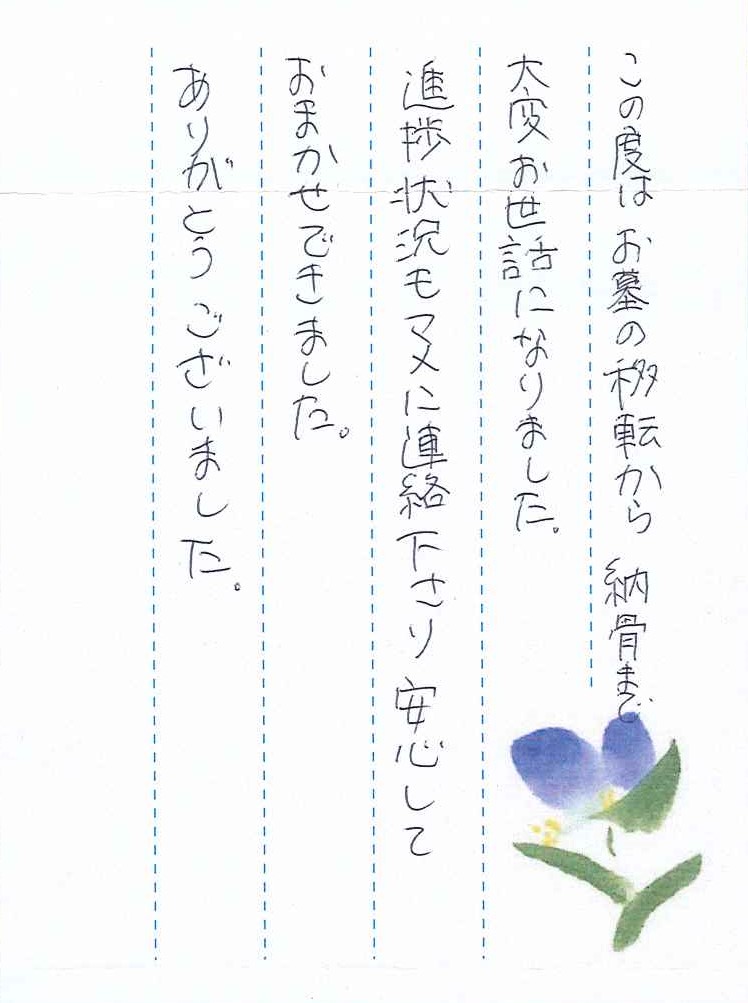 この度は お墓の移転から 納骨まで
大変お世話になりました。
進捗状況もマメに連絡下さり 安心して
おまかせできました。
ありがとう ございました。